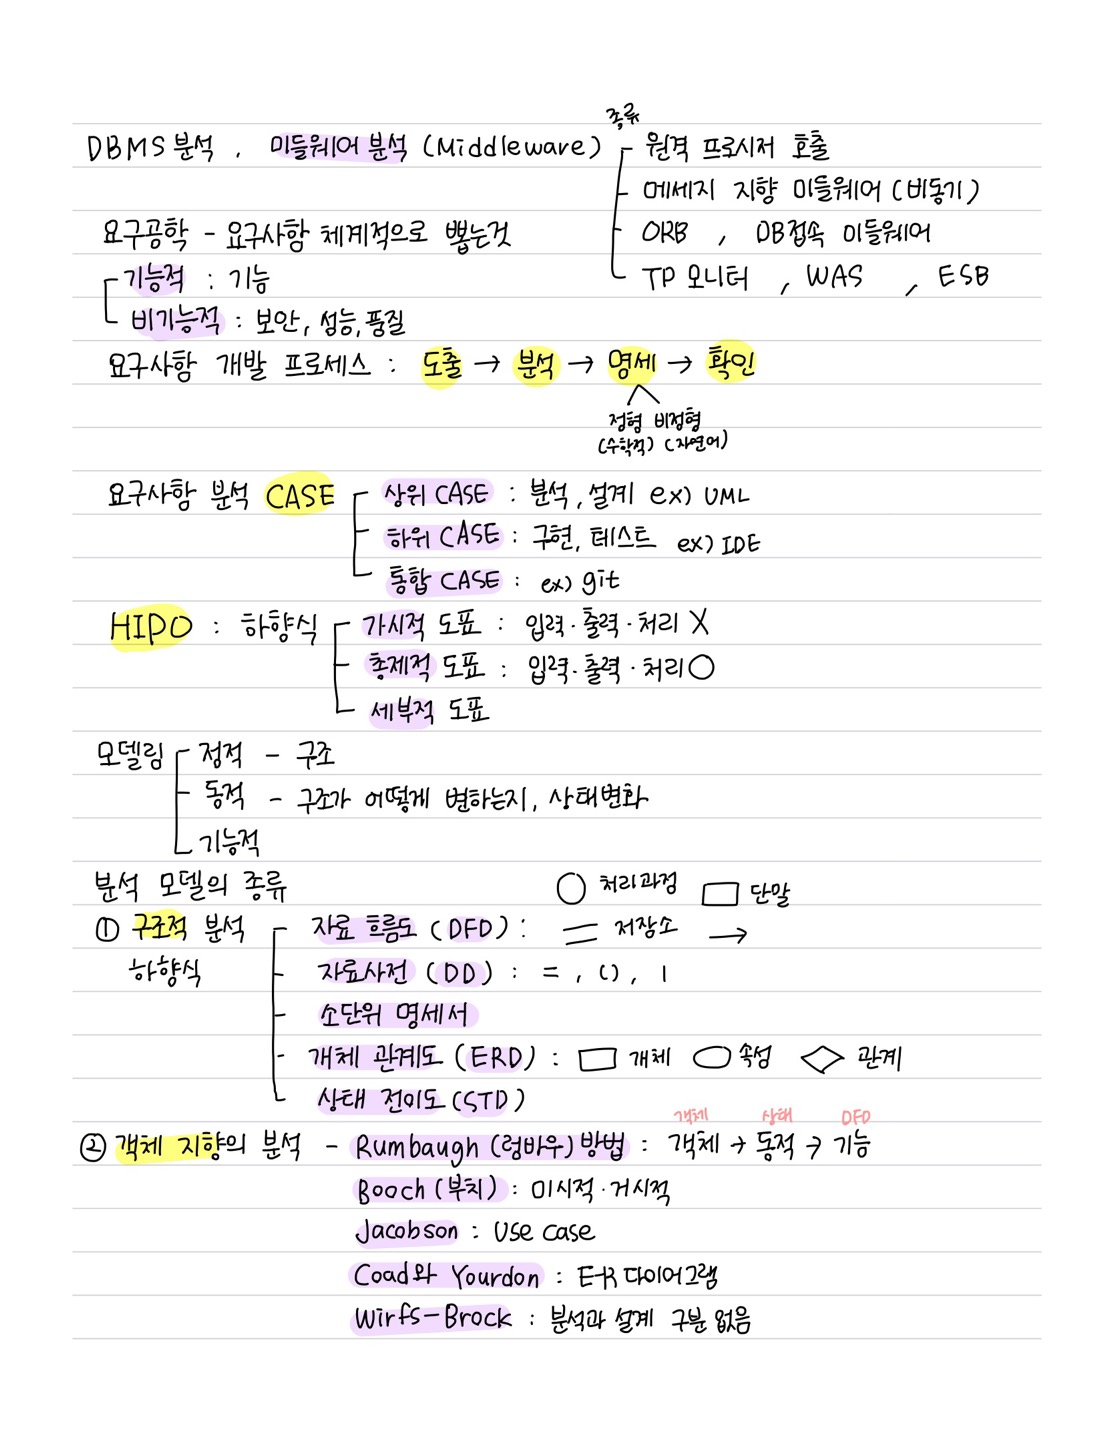 종류
DBMS 분석 , 미들웨어 분석 (Middleware) 원격 프로시저 호출
메세지 지향 미들웨어 (비동기)
요구공학 - 요구사항 체계적으로 뽑는것 ORB , DB접속 미들웨어
기능적 : 기능 TP 모니터 , WAS , ESB
비기능적 : 보안, 성능, 품질
요구사항 개발 프로세스 : 도출 → 분석 → 명세 → 확인
정형 비정형
(수학적) (자연어)
요구사항 분석 CASE 상위 CASE : 분석, 설계 ex) UML
하위 CASE : 구현, 테스트 ex) IDE
통합 CASE : ex) git
HIPO : 하향식 가시적 도표 : 입력·출력·처리 X
총체적 도표 : 입력·출력·처리 ○
세부적 도표
모델링 정적 - 구조
동적 - 구조가 어떻게 변하는지, 상태변화
기능적
분석 모델의 종류 ○ 처리과정 □ 단말
① 구조적 분석 자료 흐름도 (DFD) : = 저장소 →
하향식 자료사전 (DD) : = , () , |
소단위 명세서
개체 관계도 (ERD) : □ 개체 ○ 속성 ◇ 관계
상태 전이도 (STD)
객체 상태 DFD
② 객체 지향의 분석 - Rumbaugh (럼바우) 방법 : 객체 → 동적 → 기능
Booch (부치) : 미시적·거시적
Jacobson : Use case
Coad와 Yourdon : E-R 다이어그램
Wirfs-Brock : 분석과 설계 구분 없음